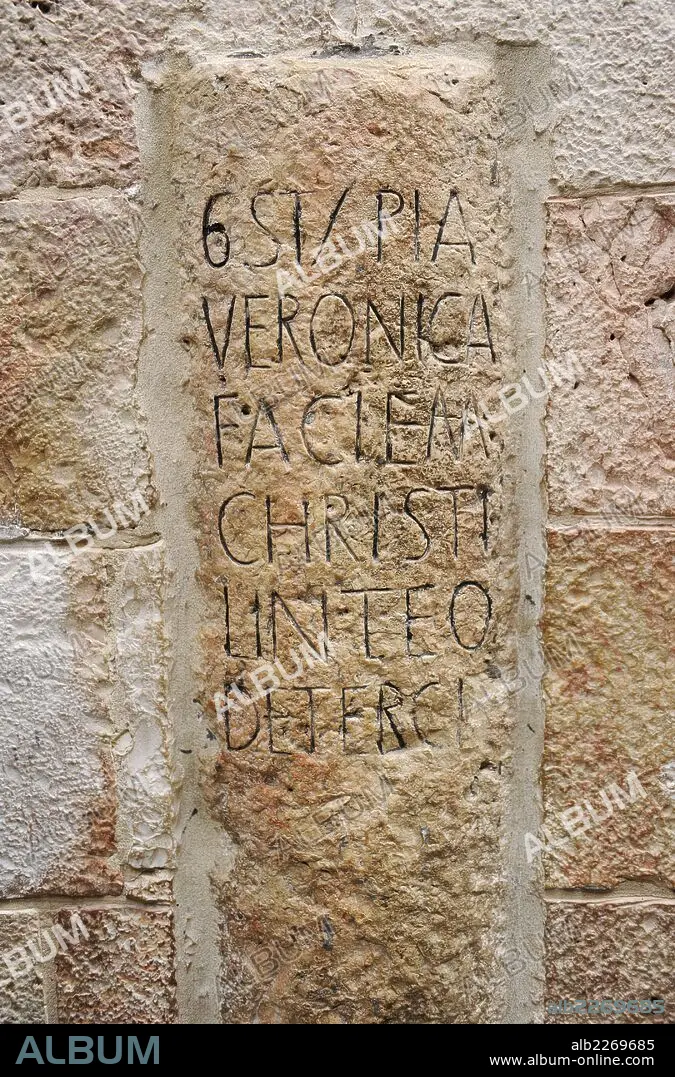 6 ST/ PIA
VERONICA
FACIEM
CHRISTI
LINTEO
DETERCI
ALBUM
alb2269685
www.album-online.com